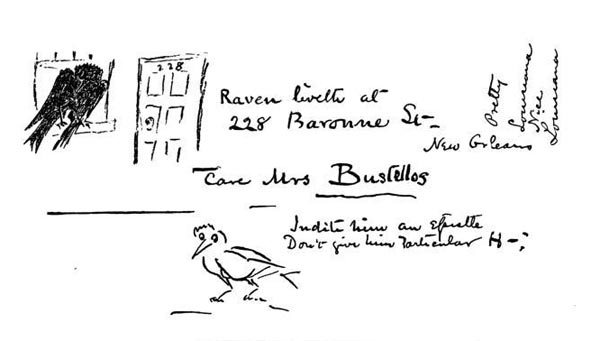 228
Raven liveth at
228 Baronne St-
New Orleans
Pretty
Louisiana
Nice
Louisiana
Care Mrs Bustellos
Indite him an Epistle
Don't give him Particular H-;